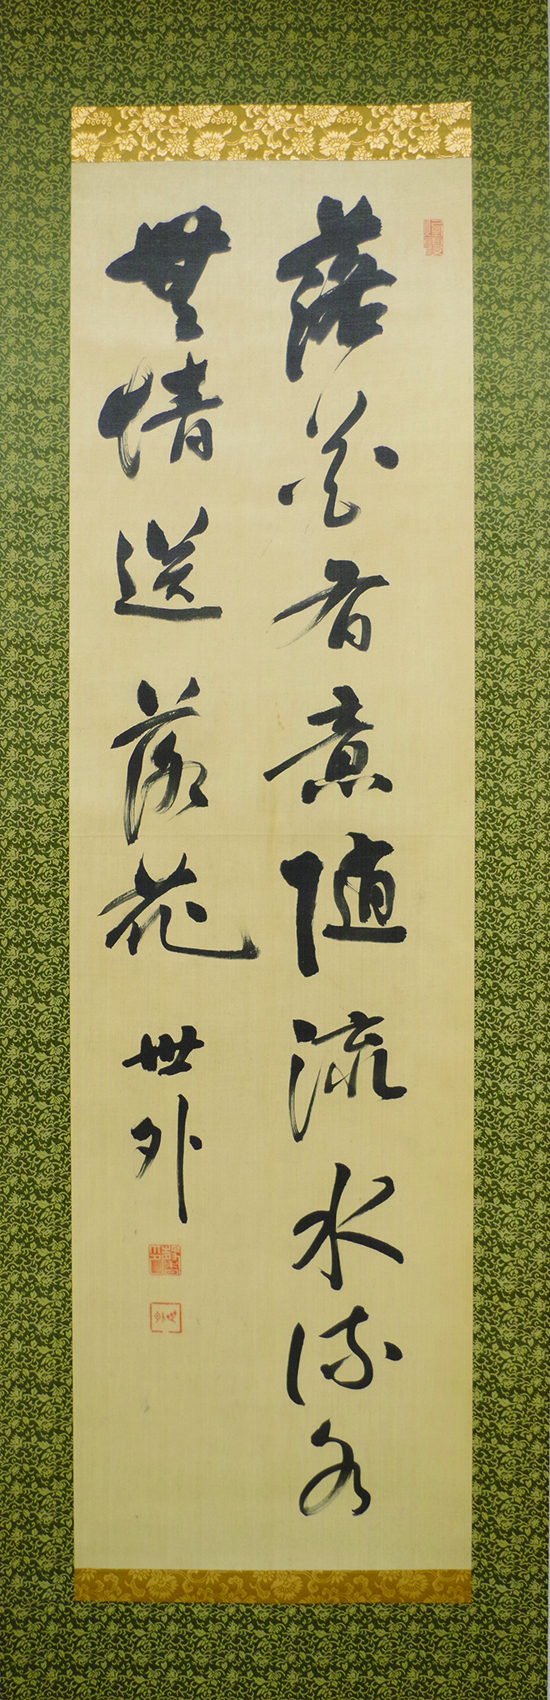 落花有意随流水流水
無情送落花 世外